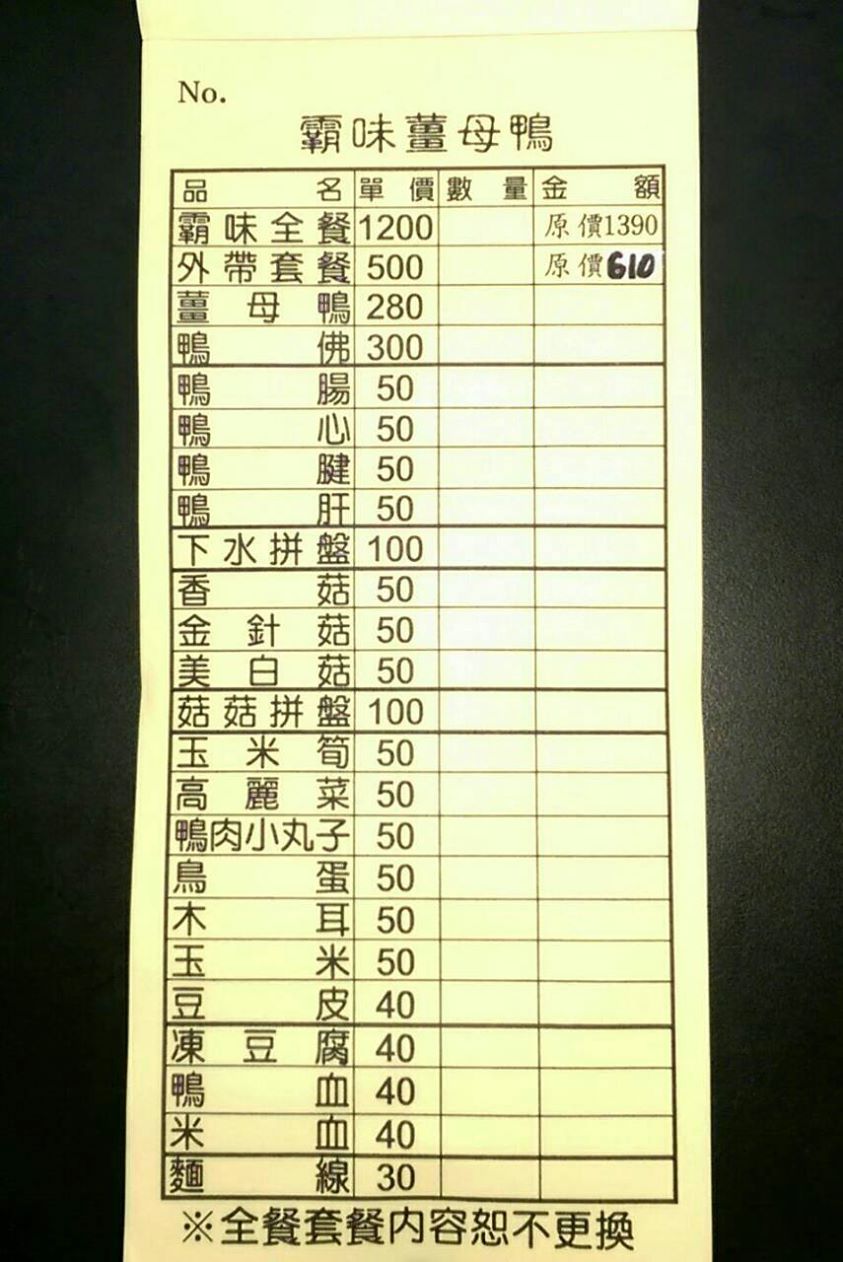 No.
霸味薑母鴨
品名 單價 數量 金額
霸味全餐 1200 原價1390
外帶套餐 500 原價610
薑母鴨 280
鴨佛 300
鴨腸 50
鴨心 50
鴨腱 50
鴨肝 50
下水拼盤 100
香菇 50
金針菇 50
美白菇 50
菇菇拼盤 100
玉米筍 50
高麗菜 50
鴨肉小丸子 50
鳥蛋 50
木耳 50
玉米 50
豆皮 40
凍豆腐 40
鴨血 40
米血 40
麵線 30
※全餐套餐內容恕不更換